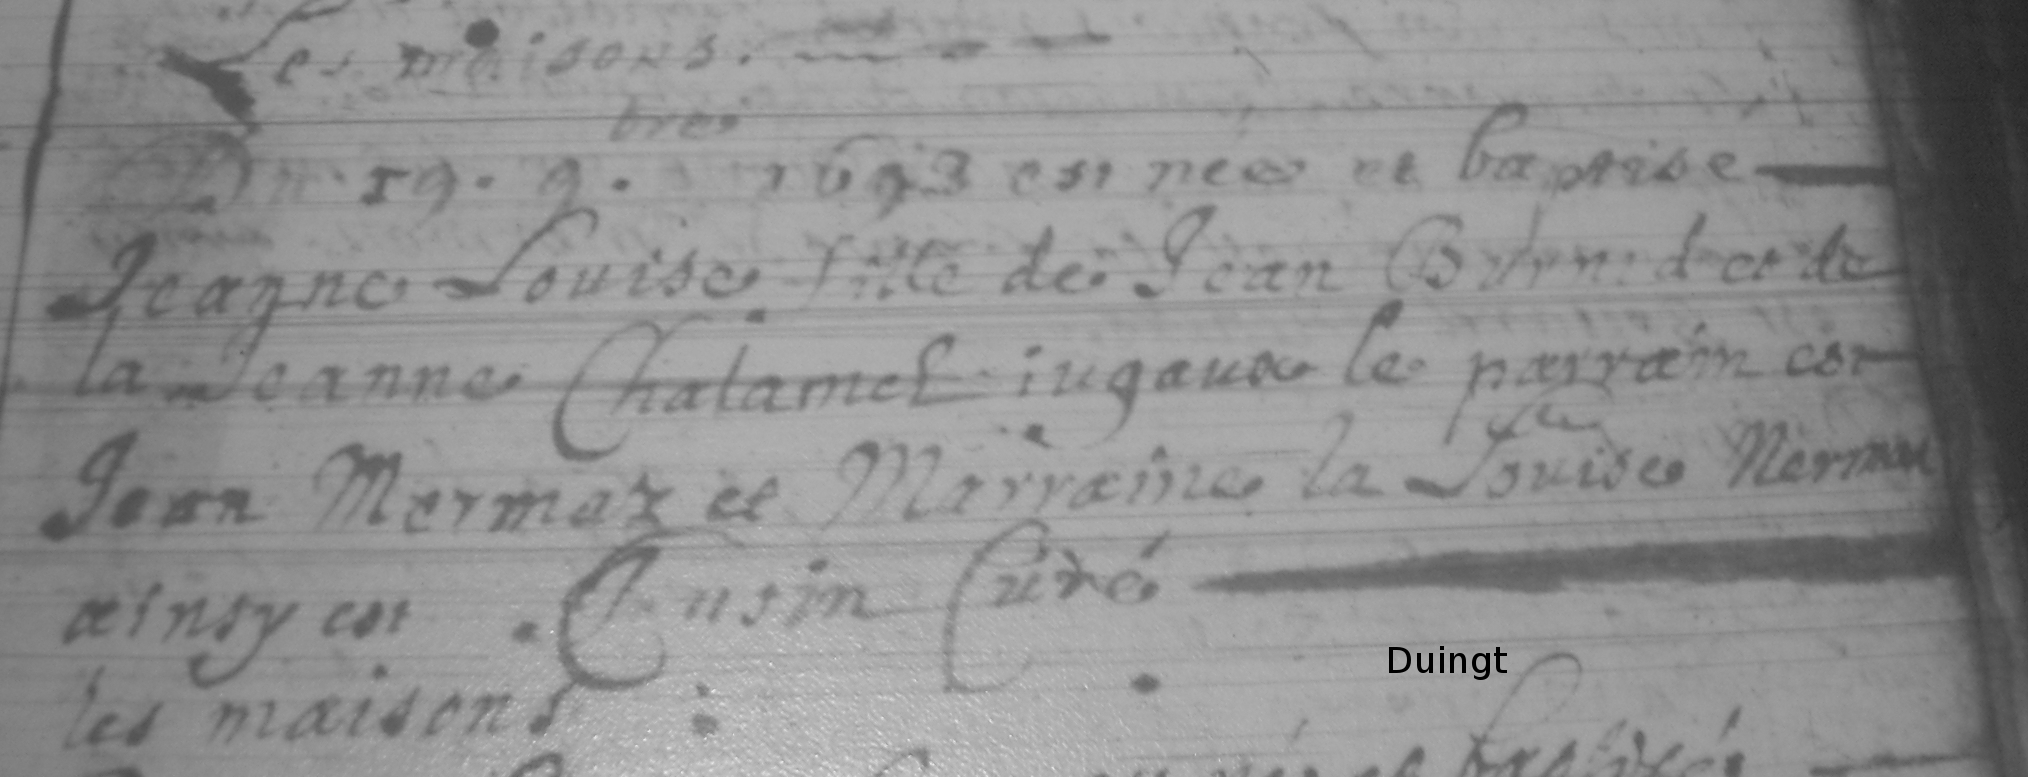 Les maisons.
bre
Du 19. 9. 1693 est née et baptisé
Jeanne Louise fille de Jean et de
la Jeanne Chalamel iugaux le parrain est
Jean Mermaz et Marraine la Louise
ainsy est Cusin Curé
Duingt
les maisons
née et baptisé